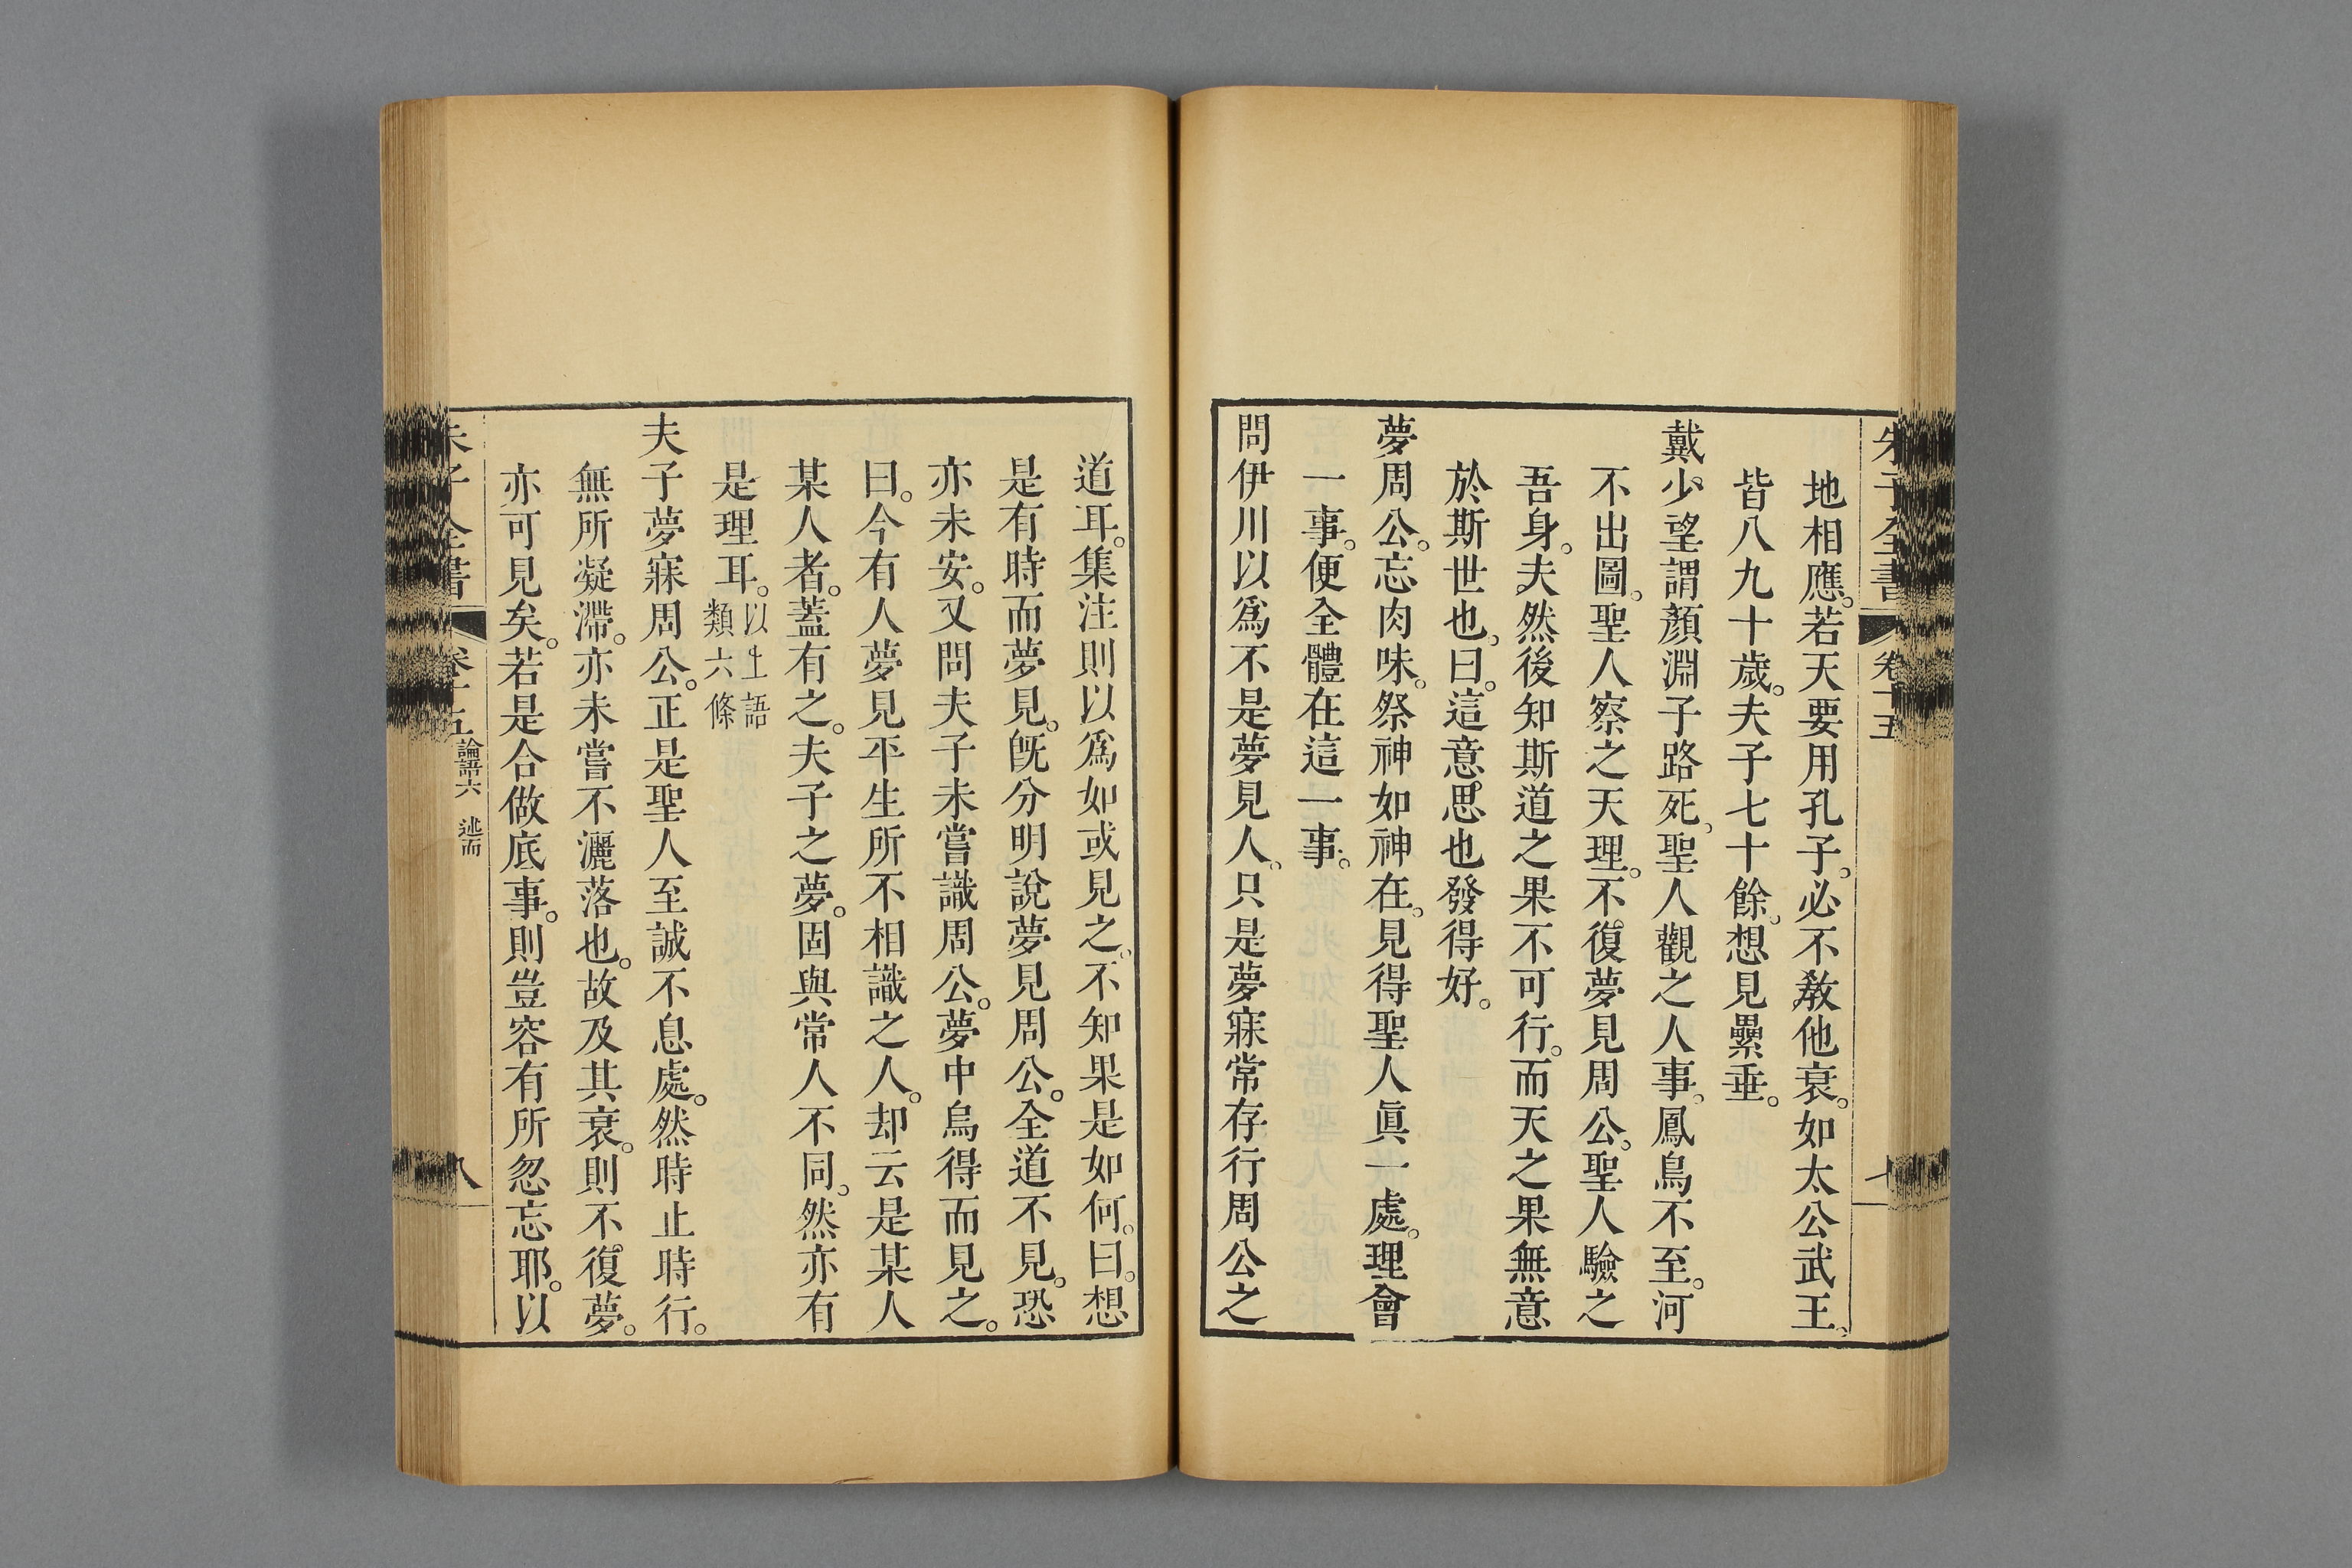 朱子全書 卷十五 七
地相應。若天要用孔子。必不敎他衰。如太公武王。
皆八九十歲。夫子七十餘。想見纍垂。
戴少望謂顏淵子路死。聖人觀之人事。鳳鳥不至。河
不出圖。聖人察之天理。不復夢見周公。聖人驗之
吾身。夫然後知斯道之果不可行。而天之果無意
於斯世也。曰。這意思也發得好。
夢周公。忘肉味。祭神如神在。見得聖人眞一處。理會
一事。便全體在這一事。
問伊川以爲不是夢見人。只是夢寐常存行周公之
道耳。集注則以爲如或見之。不知果是如何。曰。想
是有時而夢見。旣分明說夢見周公。全道不見。恐
亦未安。又問夫子未嘗識周公。夢中烏得而見之。
曰。今有人夢見平生所不相識之人。却云是某人
某人者。蓋有之。夫子之夢。固與常人不同。然亦有
是理耳。以上語類六條
夫子夢寐周公。正是聖人至誠不息處。然時止時行。
無所凝滯。亦未嘗不灑落也。故及其衰。則不復夢。
亦可見矣。若是合做底事。則豈容有所忽忘耶。以
朱子全書 卷十五 論語六 述而 八